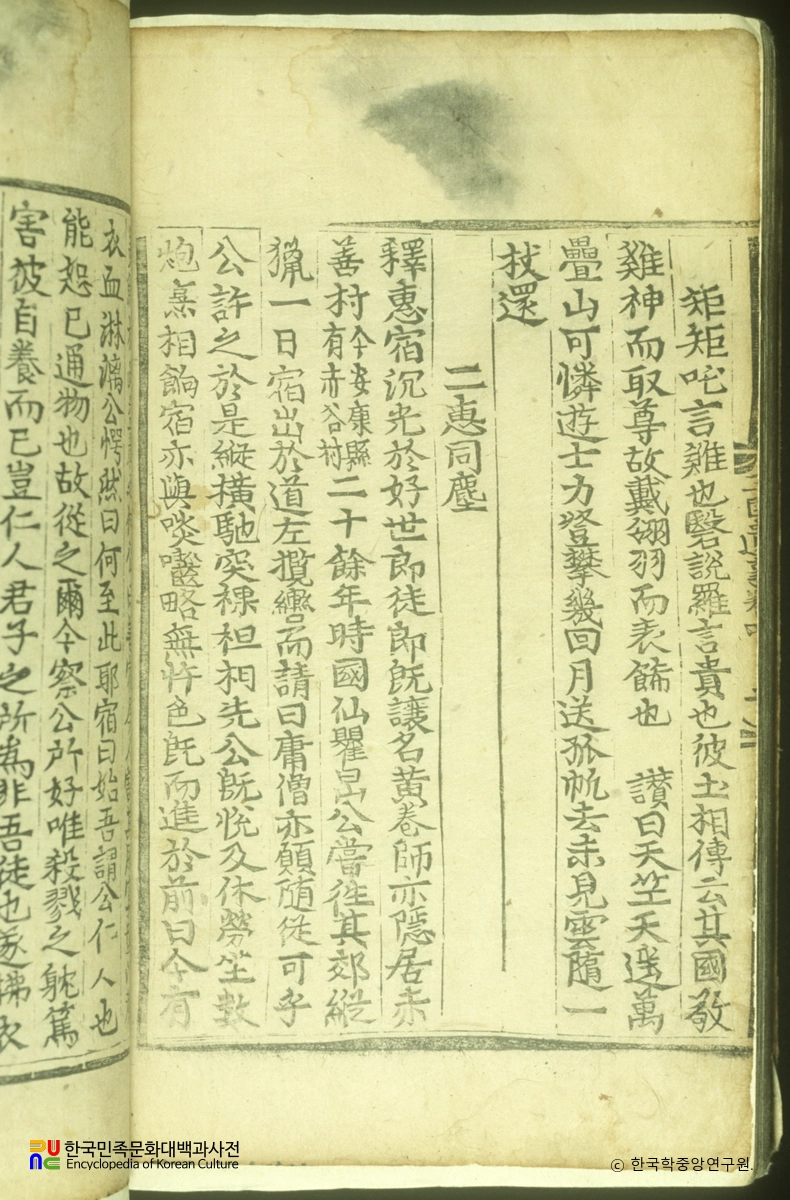 矩矩吒言雞也䃜說羅言貴也彼土相傳云其國敬
雞神而取尊故戴翎羽而表飾也 讚曰天竺天遥萬
疊山可憐遊士力登攀幾回月送孤帆去未見雲隨一
杖還
二惠同塵
釋惠宿沉光於好世郎徒郎既讓名黃卷師亦隱居赤
善村有今安康縣赤谷村二十餘年時國仙瞿旵公嘗徃其郊縱
獵一日宿出於道左攬轡而請曰庸僧亦願随從可乎
公許之於是縱橫馳突裸袒相先公既悅及休勞坐數
炮烹相餉宿亦與啖囓略無忤色既而進於前曰今有
衣血淋漓公愕然曰何至此耶宿曰始吾謂公仁人也
能恕已通物也故從之爾今察公所好唯殺戮之躭篤
害彼自養而已豈仁人君子之所為非吾徒也遂拂衣
한국민족문화대백과사전
Encyclopedia of Korean Culture
ⓒ 한국학중앙연구원.